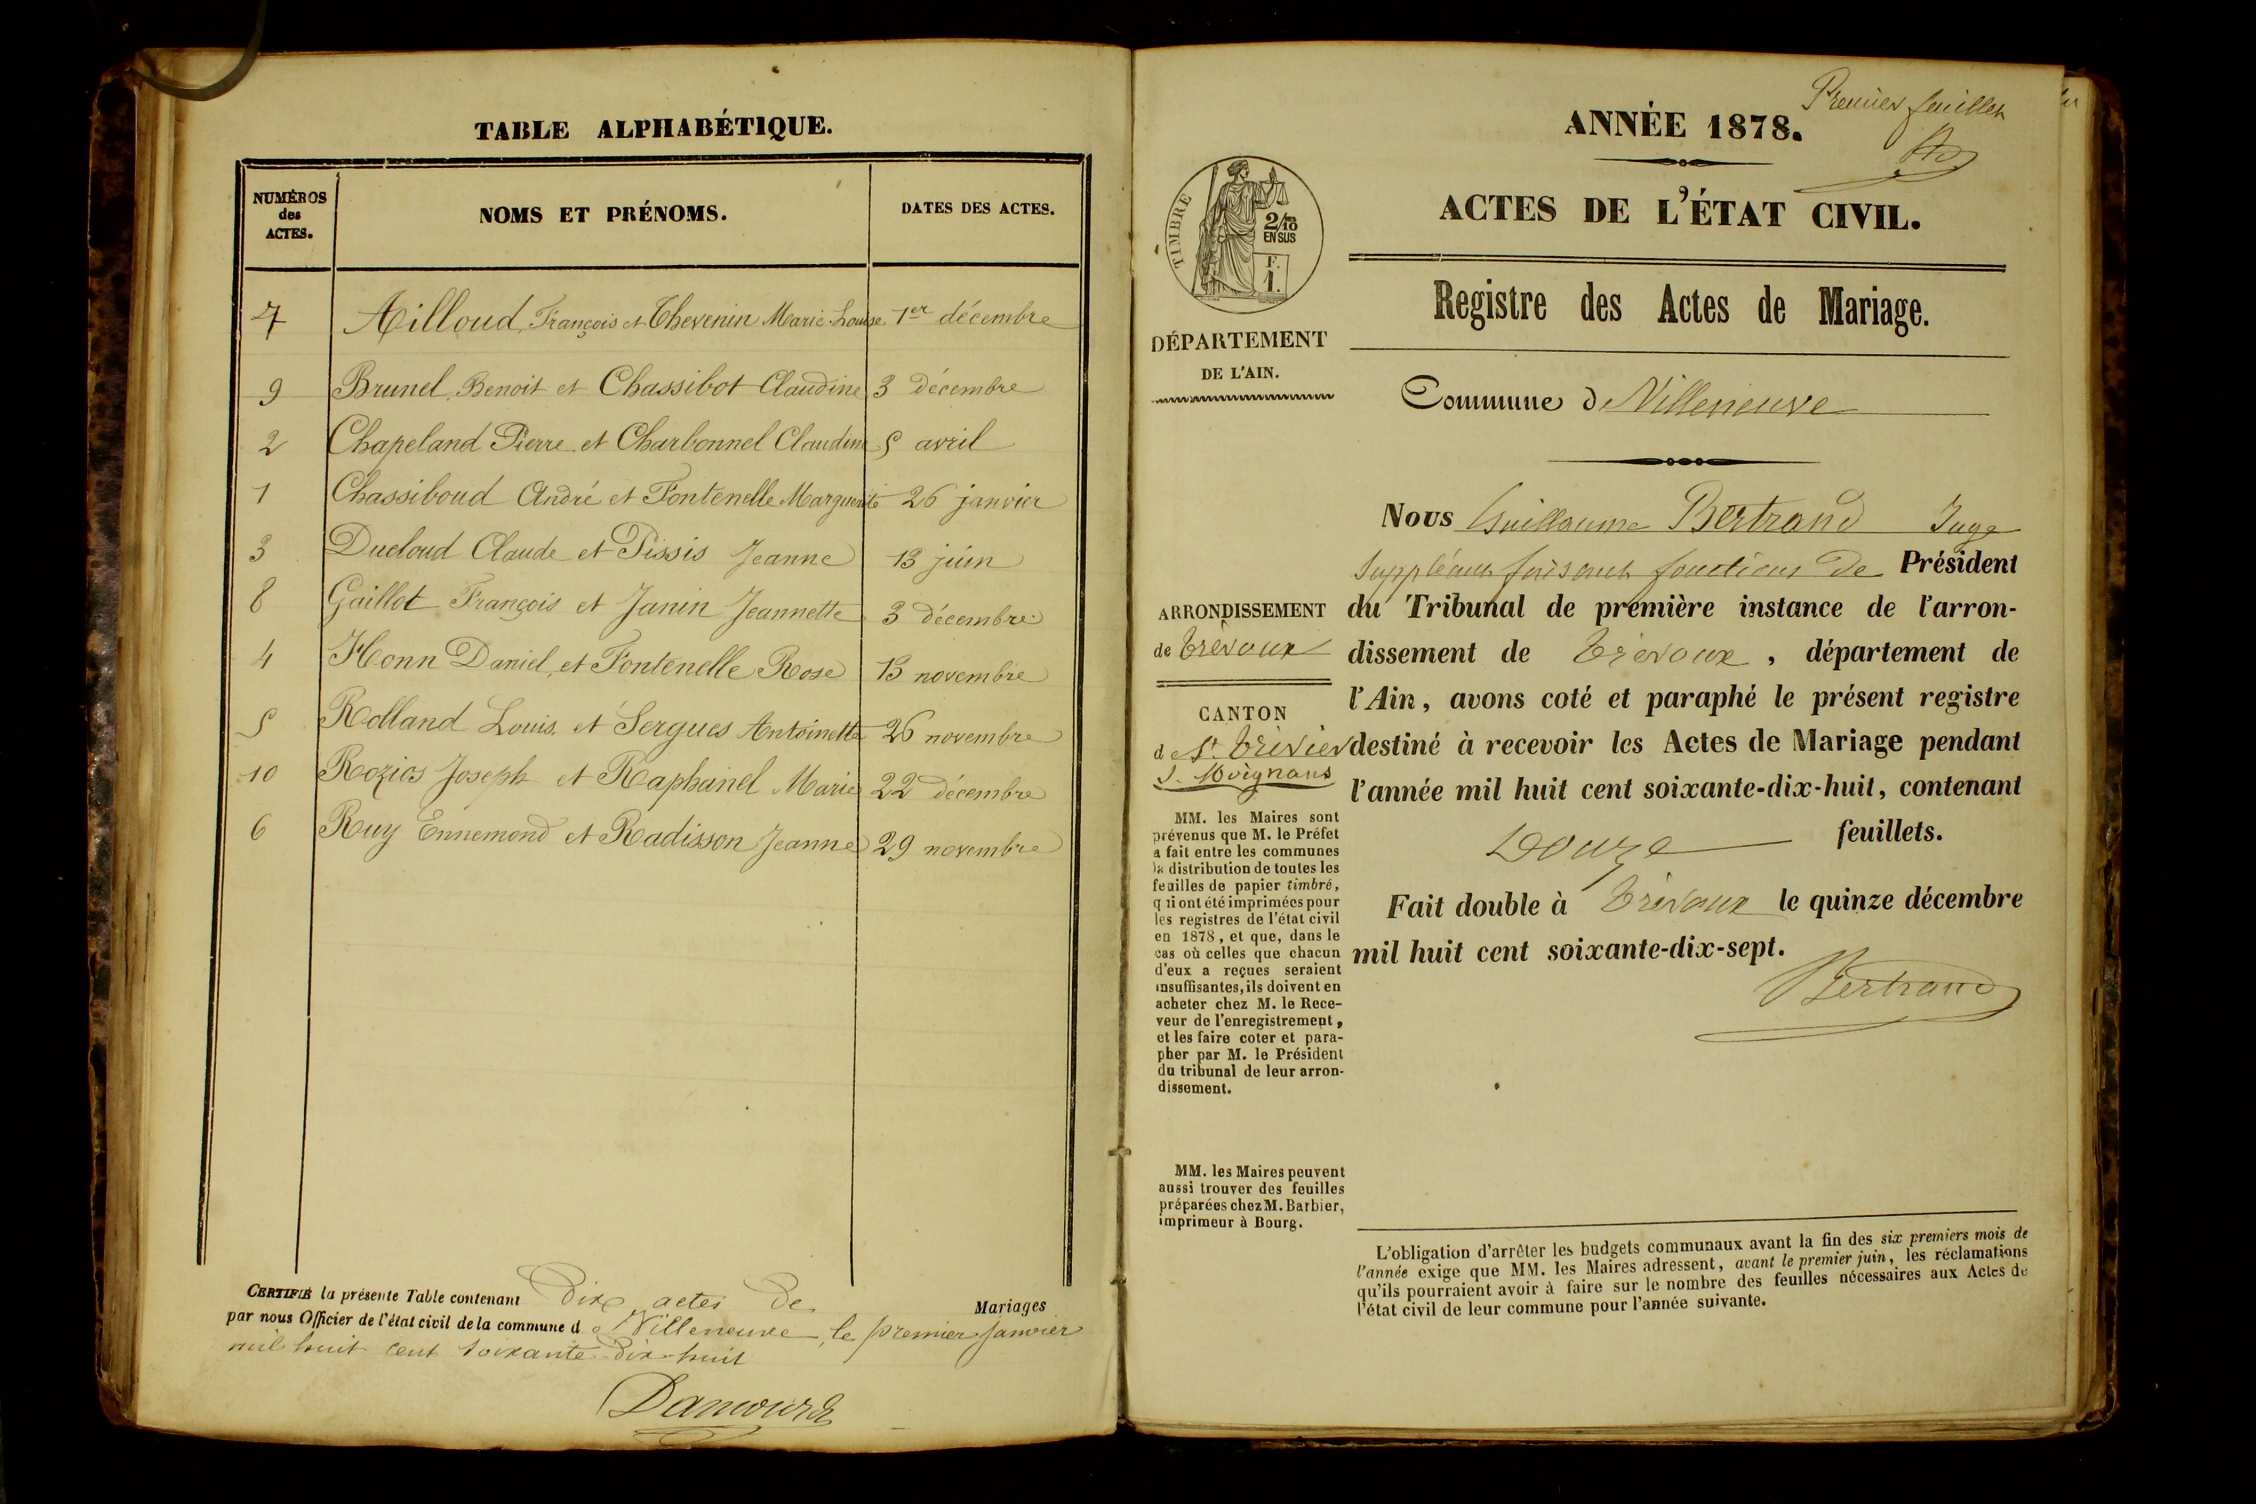 TABLE ALPHABÉTIQUE.
NUMÉROS
des
ACTES.
NOMS ET PRÉNOMS.
DATES DES ACTES.
7 Ailloud François et Thevenin Marie Louise 1er décembre
9 Brunel Benoit et Chassibot Claudine 3 décembre
2 Chapeland Pierre et Charbonnel Claudine 5 avril
1 Chassiboud André et Fontenelle Marguerite 26 janvier
3 Ducloud Claude et Pissis Jeanne 13 juin
8 Gaillot François et Janin Jeannette 3 décembre
4 Honn Daniel et Fontenelle Rose 13 novembre
5 Rolland Louis et Sergues Antoinette 26 novembre
10 Rozios Joseph et Raphanel Marie 22 décembre
6 Ruy Ennemond et Radisson Jeanne 29 novembre
CERTIFIÉ la présente Table contenant Dix actes de Mariages
par nous Officier de l'état civil de la commune de Villeneuve, le premier janvier
mil huit cent soixante-dix-huit
Premier feuillet
ANNÉE 1878.
ACTES DE L'ÉTAT CIVIL.
TIMBRE
2/10
EN SUS
F.
1.
Registre des Actes de Mariage.
DÉPARTEMENT
DE L'AIN.
Commune de Villeneuve
Nous Guillaume Bertrand Juge
Suppléant faisant fonctions de Président
du Tribunal de première instance de l'arron-
dissement de Trévoux, département de
l'Ain, avons coté et paraphé le présent registre
destiné à recevoir les Actes de Mariage pendant
l'année mil huit cent soixante-dix-huit, contenant
Douze feuillets.
Fait double à Trévoux le quinze décembre
mil huit cent soixante-dix-sept.
Bertrand
ARRONDISSEMENT
de Trévoux
CANTON
de St Trivier
s. Moignans
MM. les Maires sont
prévenus que M. le Préfet
a fait entre les communes
la distribution de toutes les
feuilles de papier timbré,
qui ont été imprimées pour
les registres de l'état civil
en 1878, et que, dans le
cas où celles que chacun
d'eux a reçues seraient
insuffisantes, ils doivent en
acheter chez M. le Rece-
veur de l'enregistrement,
et les faire coter et para-
pher par M. le Président
du tribunal de leur arron-
dissement.
MM. les Maires peuvent
aussi trouver des feuilles
préparées chez M. Barbier,
imprimeur à Bourg.
L'obligation d'arrêter les budgets communaux avant la fin des six premiers mois de
l'année exige que MM. les Maires adressent, avant le premier juin, les réclamations
qu'ils pourraient avoir à faire sur le nombre des feuilles nécessaires aux Actes de
l'état civil de leur commune pour l'année suivante.